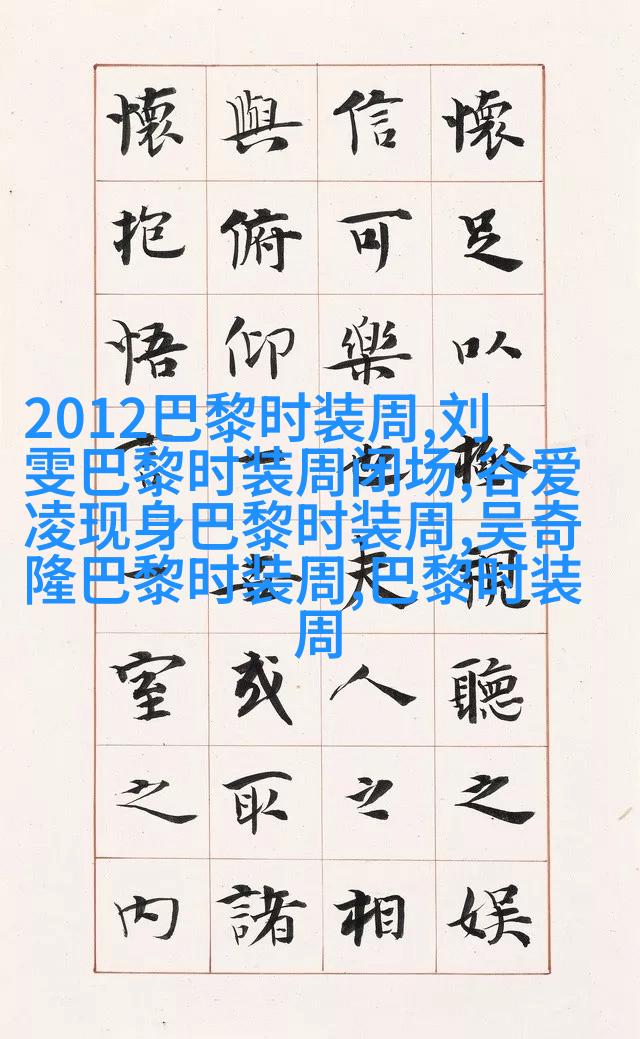 懷足以極視聽之娛
信可樂也夫人之相
與俯仰一世或取諸
懷抱悟言一室之內
2012巴黎时装周,刘
雯巴黎时装周闭场,谷爱
凌现身巴黎时装周,吴奇
隆巴黎时装周,巴黎时装
周